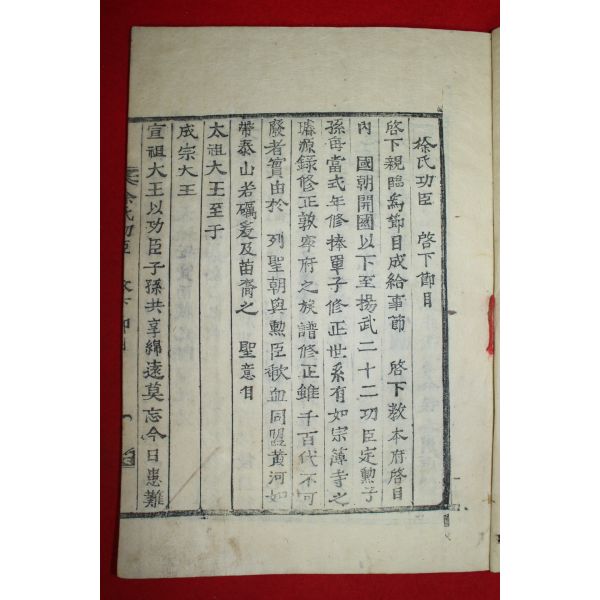 徐氏功臣 啓下節目
啓下親臨爲節目成給事節 啓下敎本府啓目
內 國朝開國以下至揚武二十二功臣定勳子
孫每當式年修捧單子修正世系有如宗簿寺之
璿源錄修正敦寧府之族譜修正雖千百代不可
廢者實由於 列聖朝與勲臣歃血同盟黃河如
帶泰山若礪爰及苗裔之 聖意百
太祖大王至于
成宗大王
宣祖大王以功臣子孫共享綿遠莫忘今日患難
徐氏功臣 啓下節目 一